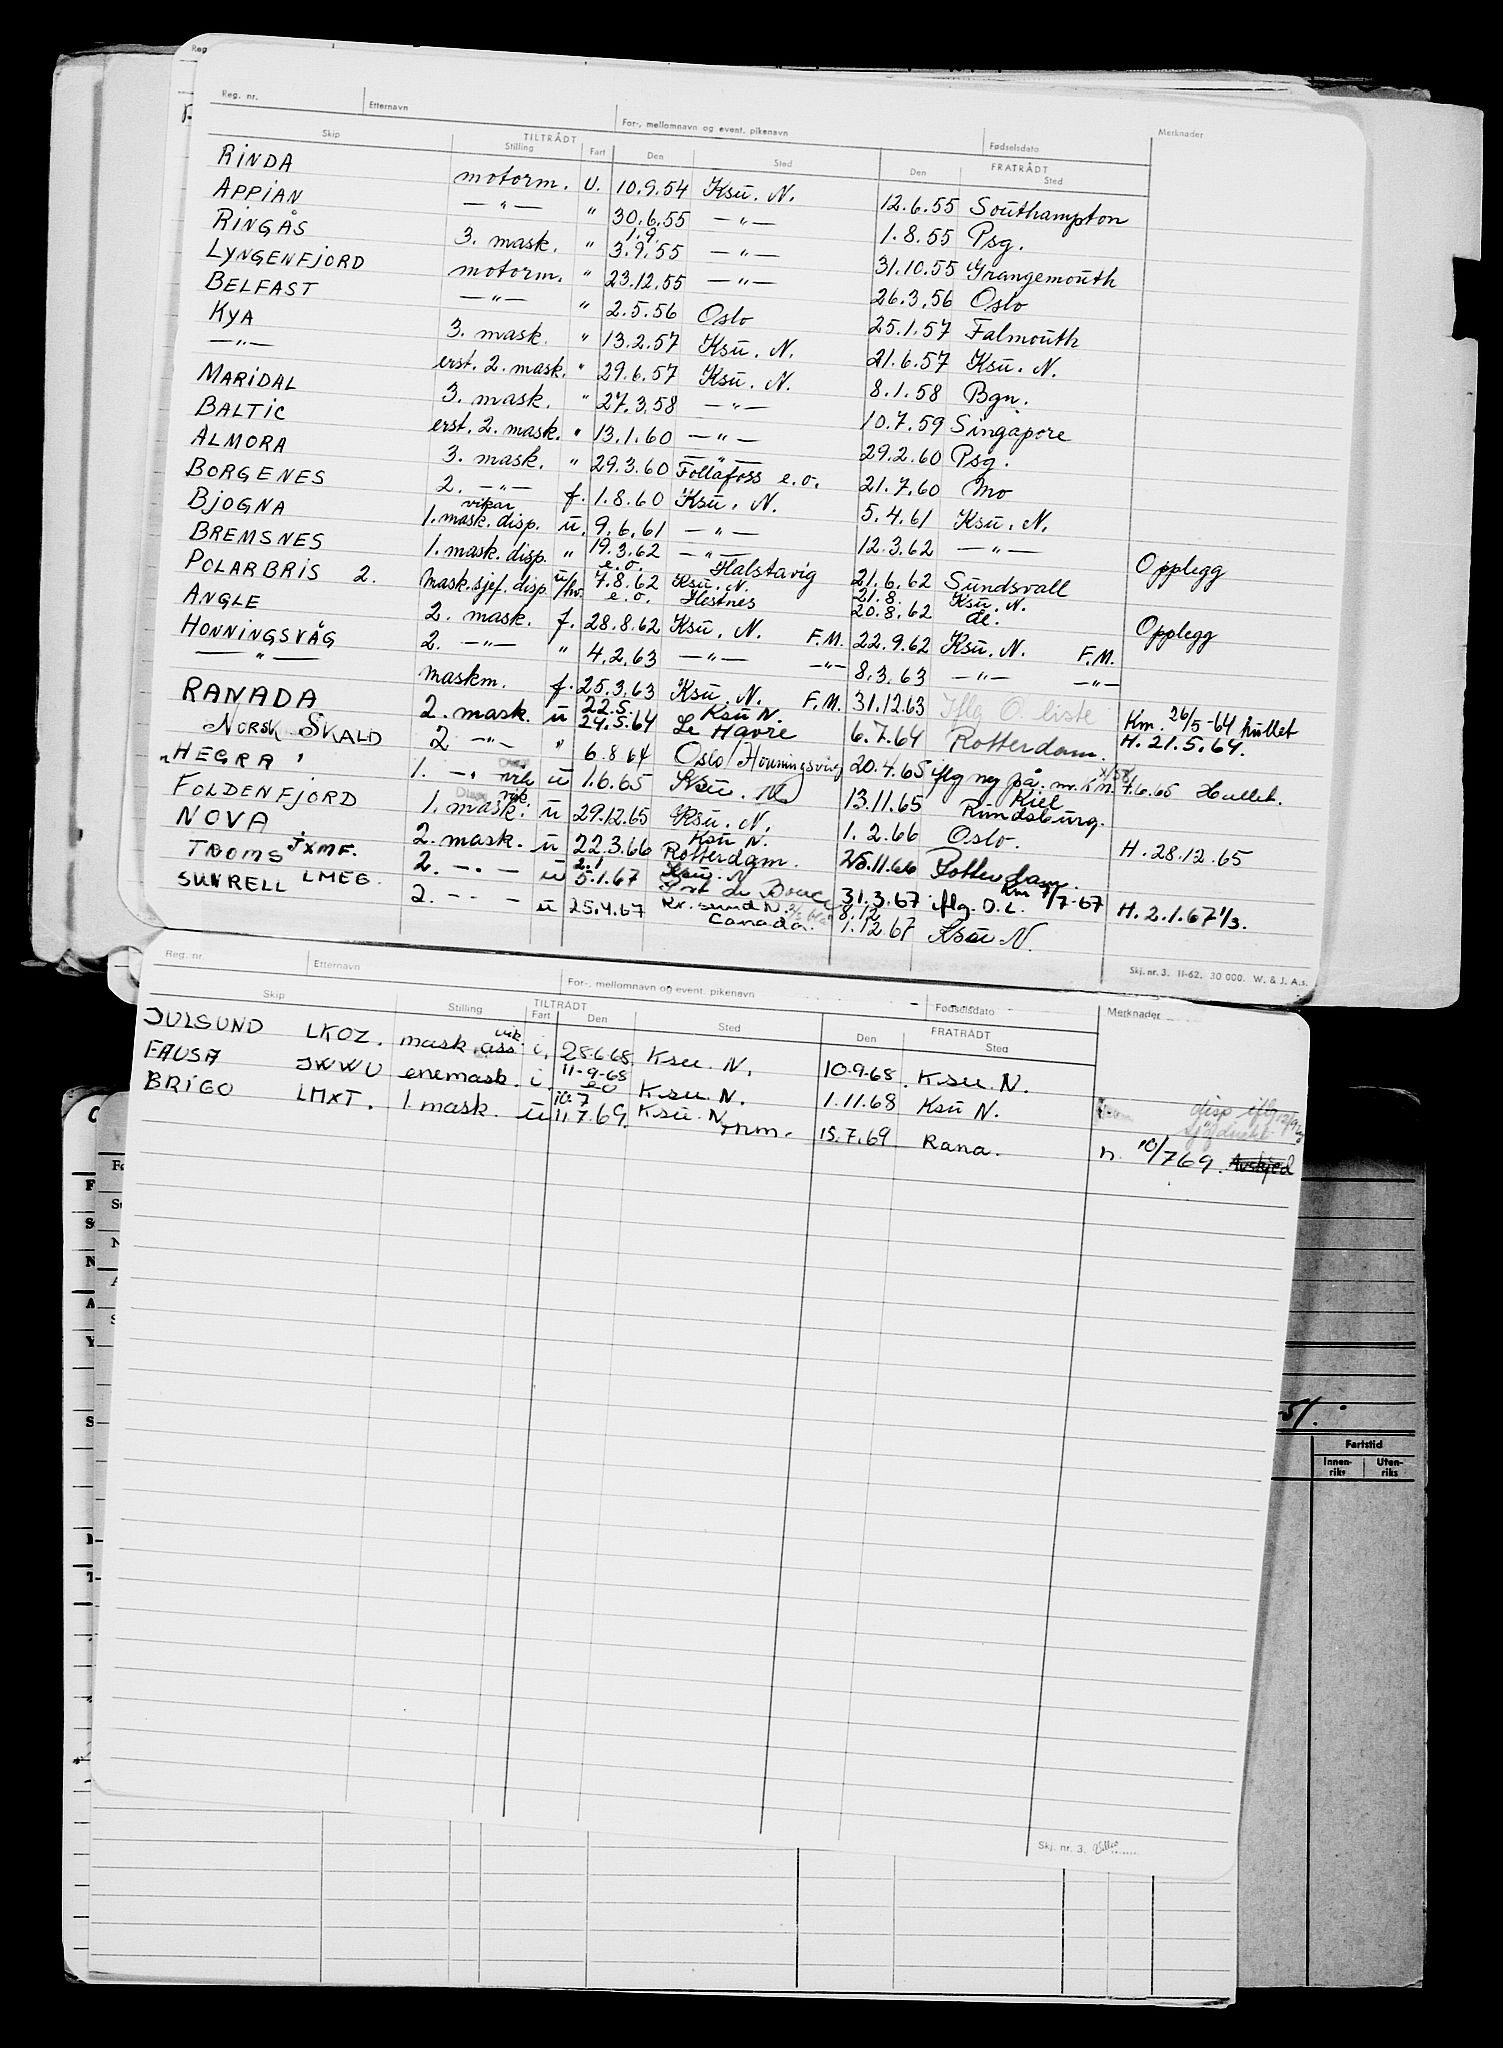 Reg. nr. Etternavn For-, mellomnavn og event. pikenavn Fødselsdato Merknader
Skip TILTRÅDT FRATRÅDT
Stilling Fart Den Sted Den Sted
RINDA motorm. U. 10.9.54 Ksu. N. 12.6.55 Southampton
APPIAN —"— " 30.6.55 —"— 1.8.55 Psg.
RINGÅS 3. mask. " 1.9. 3.9.55 —"— 31.10.55 Grangemouth
LYNGENFJORD motorm. " 23.12.55 —"— 26.3.56 Oslo
BELFAST —"— " 2.5.56 Oslo 25.1.57 Falmouth
KYA 3. mask. " 13.2.57 Ksu. N. 21.6.57 Ksu. N.
—"— erst. 2. mask. " 29.6.57 Ksu. N. 8.1.58 Bgn.
MARIDAL 3. mask. " 27.3.58 —"— 10.7.59 Singapore
BALTIC erst. 2. mask. " 13.1.60 —"— 29.2.60 Psg.
ALMORA 3. mask. " 29.3.60 Follafoss e.o. 21.7.60 Mo
BORGENES 2. —"— f. 1.8.60 Ksu. N. 5.4.61 Ksu. N.
BJOGNA vikar 1. mask. disp. u. 9.6.61 —"— 12.3.62 —"— Opplegg
BREMSNES 1. mask. disp. " 19.3.62 e.o. —"— Halstavig 21.6.62 Sundsvall
POLARBRIS 2. mask. sjef. disp. u/hv. 7.8.62 e.o. Ksu. N. Hestnes 21.8. 20.8.62 Ksu. N. de. Opplegg
ANGLE 2. mask. f. 28.8.62 Ksu. N. F.M. 22.9.62 Ksu. N. F.M.
HONNINGSVÅG 2. —"— " 4.2.63 —"— —"— 8.3.63 —"— —"—
—"— maskm. f. 25.3.63 Ksu. N. F.M. 31.12.63 Iflg O. liste Km 26/5-64 hullet
RANADA 2. mask. u 22.5. 24.5.64 Ksu N. Le Havre 6.7.64 Rotterdam. H. 21.5.64.
NORSK SKALD 2 —"— " 6.8.64 Oslo/Honningsvåg 20.4.65 iflg 7.6.65 Hullet.
"HEGRA" 1. —"— vik u 1.6.65 Ksu. N. 13.11.65 Kiel Rundsburg.
FOLDENFJORD 1. mask. vik. u 29.12.65 Ksu. N. 1.2.66 Oslo. H. 28.12.65
NOVA 2. mask. u 22.3.66 Ksu N. Rotterdam. 25.11.66 Rotterdam.
TROMS JXMF. 2. —"— u 2.1 5.1.67 Ksu. N 31.3.67 iflg. O.L. Km 7/7-67 H. 2.1.67 1/3.
SUNRELL LMEG. 2. —"— u 25.4.67 Kr.sund N. Canada. 8.12 1.12.67 Ksu N.
Skj. nr. 3. 11-62. 30 000. W. & J. A.s.
Reg. nr. Etternavn For-, mellomnavn og event. pikenavn Fødselsdato Merknader
Skip TILTRÅDT FRATRÅDT
Stilling Fart Den Sted Den Sted
JULSUND LKOZ. mask.ass vik. i. 28.6.68. Ksu. N. 10.9.68. Ksu. N.
FAUSA JWWU enemask. i. 11-9-68 eo Ksu. N. 1.11.68 Ksu N.
BRIGO LMXT. 1. mask. u 10.7 11.7.69. Ksu. N. Trm. 15.7.69 Rana. n. 10/7 69. Avskjed
disp iflg
Skj. nr. 3.
51.
Fartstid
Innen-riks Uten-riks